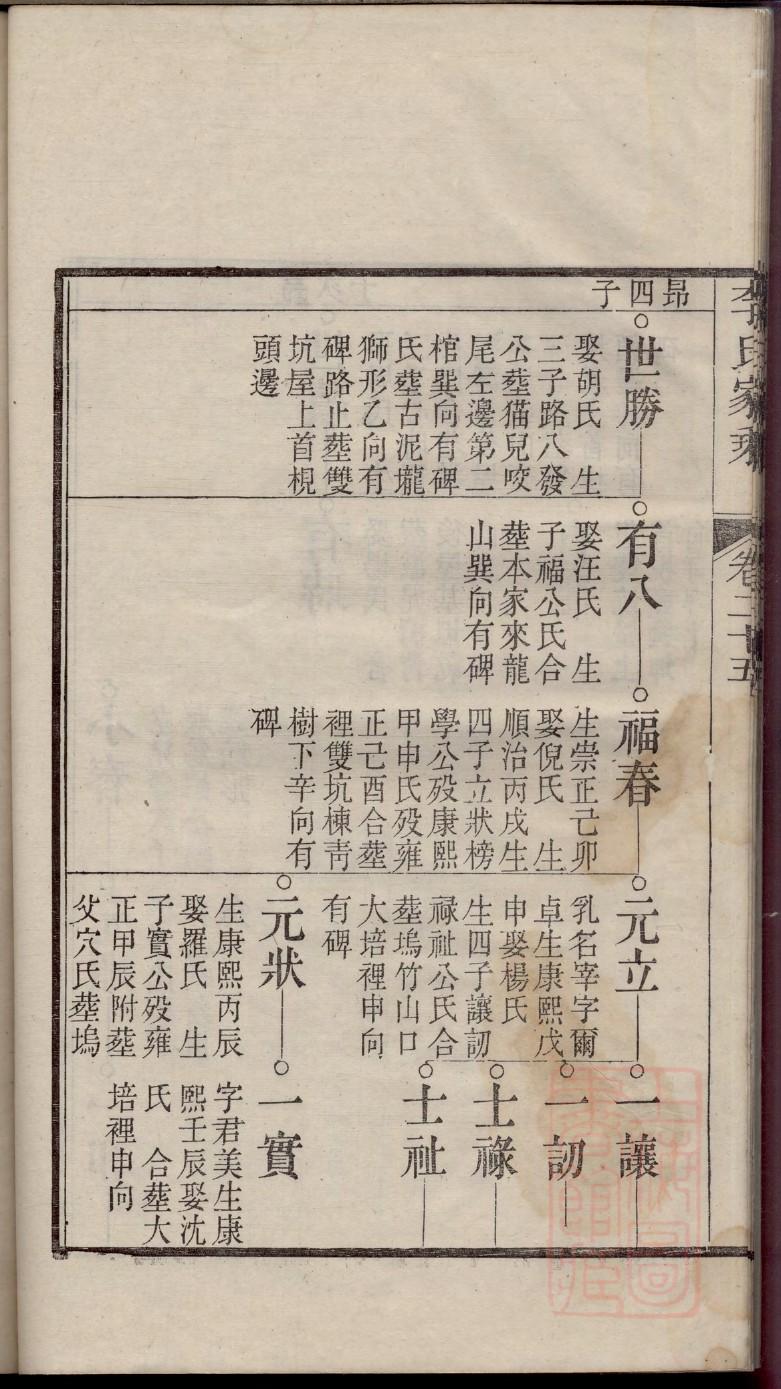 李氏家
卷二十五
昂四子
世勝
娶胡氏 生
三子路八發
公塟猫兒咬
尾左邊第二
棺巽向有碑
氏塟古泥壠
獅形乙向有
碑路止塟雙
坑屋上首梘
頭邊
有八
娶汪氏 生
子福公氏合
塟本家來龍
山巽向有碑
福春
生崇正己卯
娶倪氏 生
順治丙戌生
四子立狀榜
學公殁康熙
甲申氏殁雍
正己酉合塟
裡雙坑棟靑
樹下辛向有
碑
元立
乳名宰字爾
卓生康熙戊
申娶楊氏
生四子讓訒
祿祉公氏合
塟塢竹山口
大培裡申向
有碑
元狀
生康熙丙辰
娶羅氏 生
子實公殁雍
正甲辰附塟
父穴氏塟塢
一讓
一訒
士祿
士祉
一實
字君美生康
熙壬辰娶沈
氏 合塟大
培裡申向